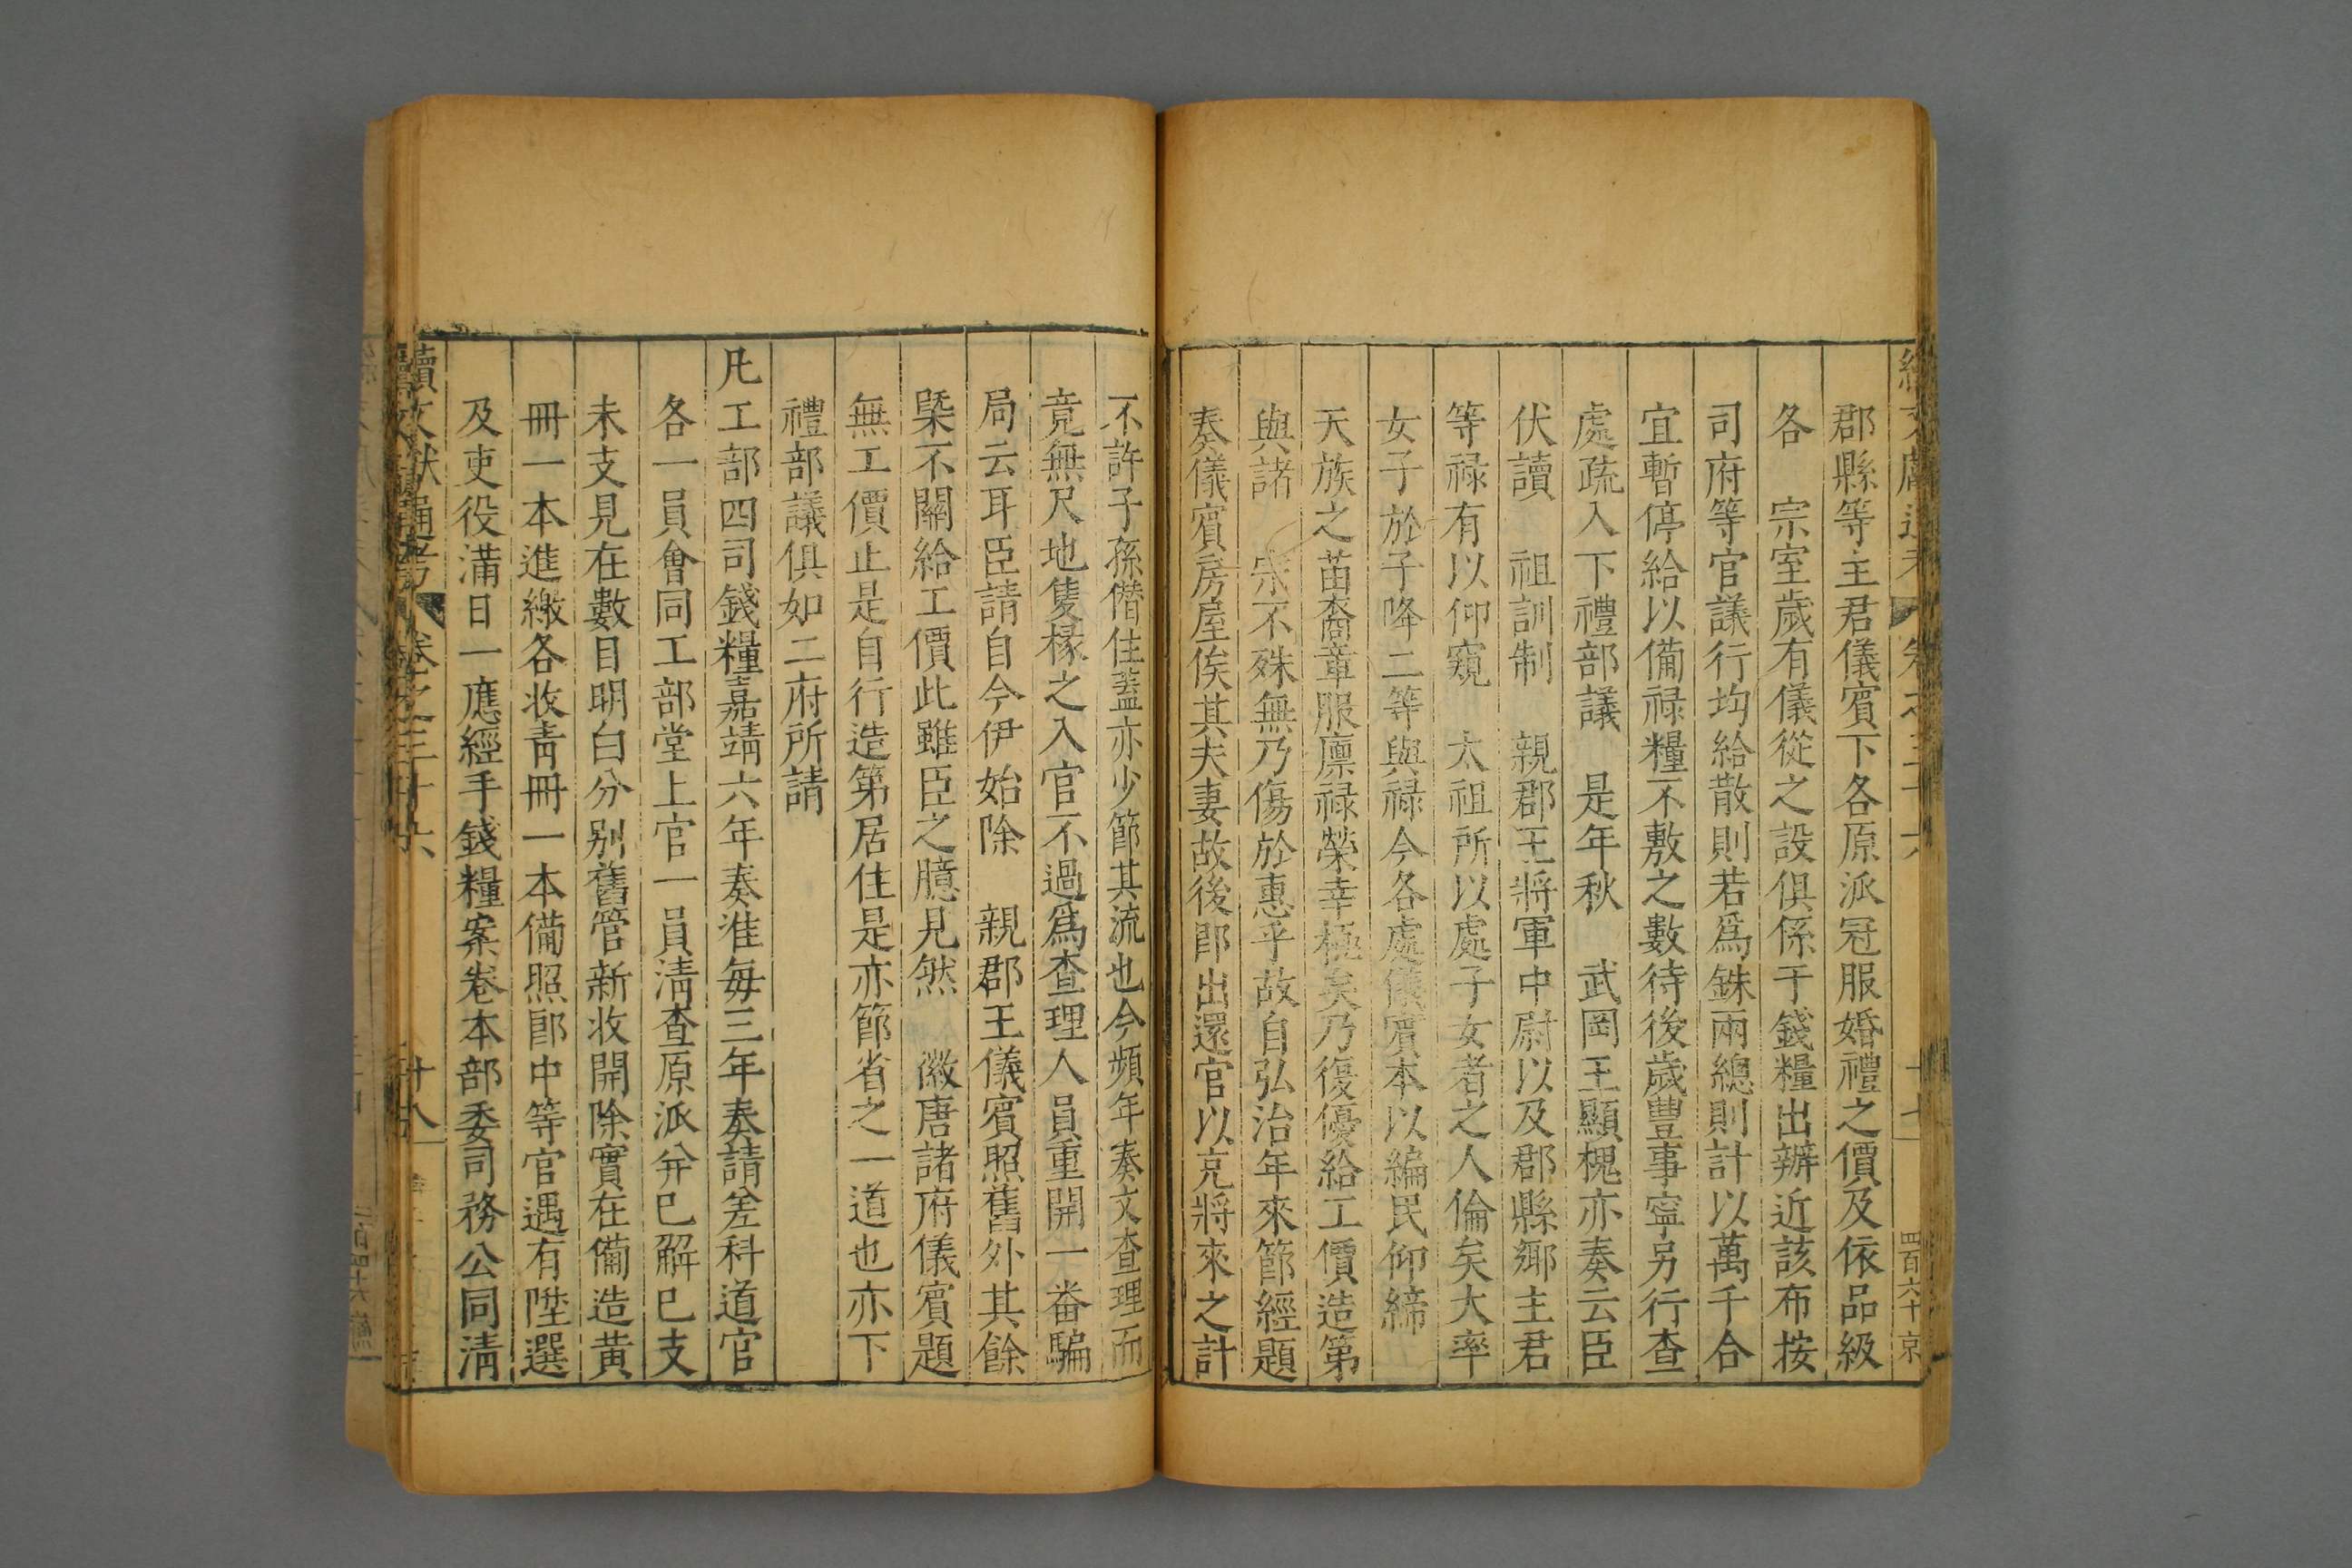 郡縣等主君儀賓下各原派冠服婚禮之價及依品級
各　宗室歲有儀從之設俱係干錢糧出辦近該布按
司府等官議行均給散則若爲銖兩總則計以萬千合
宜暫停給以備祿糧不敷之數待後歲豐事寧另行查
處疏入下禮部議　是年秋　武岡王顯槐亦奏云臣
伏讀　祖訓制　親郡王將軍中尉以及郡縣鄉主君
等祿有以仰窺　太祖所以處子女者之人倫矣大率
女子於子降二等與祿今各處儀賓本以編民仰締
天族之苗裔章服廩祿榮幸極矣乃復優給工價造第
與諸　宗不殊無乃傷於惠乎故自弘治年來節經題
奏儀賓房屋俟其夫妻故後卽出還官以克將來之計
不許子孫僭住蓋亦少節其流也今頻年奏文查理而
竟無尺地隻椽之入官不過爲查理人員重開一番騙
局云耳臣請自今伊始除　親郡王儀賓照舊外其餘
槩不關給工價此雖臣之臆見然　徽唐諸府儀賓題
無工價止是自行造第居住是亦節省之一道也亦下
禮部議俱如二府所請
凡工部四司錢糧嘉靖六年奏准每三年奏請差科道官
各一員會同工部堂上官一員淸查原派并已解已支
未支見在數目明白分别舊管新收開除實在備造黄
冊一本進繳各收靑冊一本備照郎中等官遇有陞選
及吏役滿日一應經手錢糧案卷本部委司務公同淸
續文獻通考　卷之三十六　十八